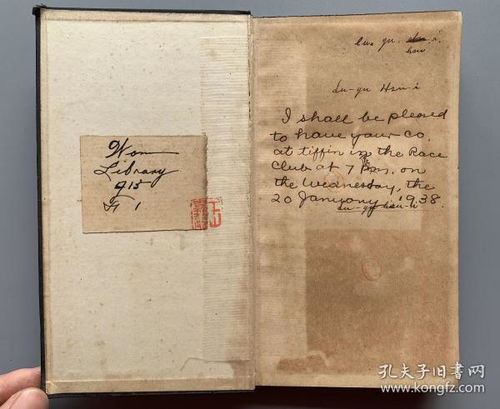 Won
Library
915
Lu-yu Hsu-i
I shall be pleased
to have your co.
at tiffin in the Race
Club at 7 P.m. on
the Wednesday, the
20 Januany, 1938.
孔夫子旧书网
www.kongfz.com